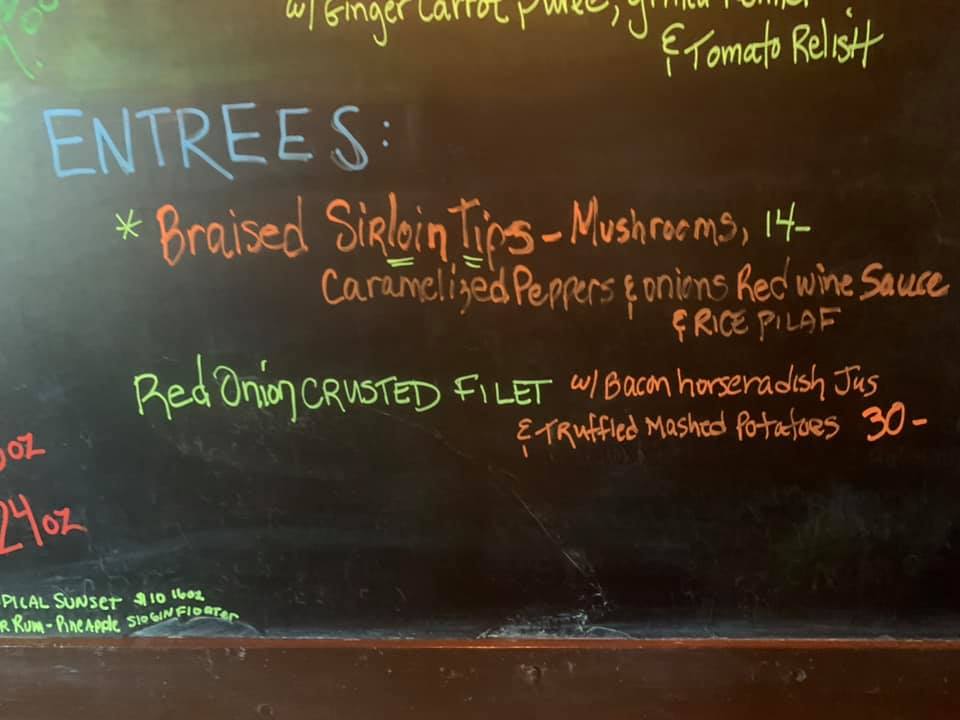 w/ Ginger Carrot puree,
& Tomato Relish
ENTREES:
* Braised Sirloin Tips - Mushrooms, 14-
Caramelized Peppers & onions Red wine Sauce
& RICE PILAF
Red Onion CRUSTED FILET w/ Bacon horseradish Jus
& TRuffled Mashed Potatoes 30-
oz
24oz
PICAL SUNSET $10 16oz
R RUM - PINEAPPLE SLOGIN FLOATER